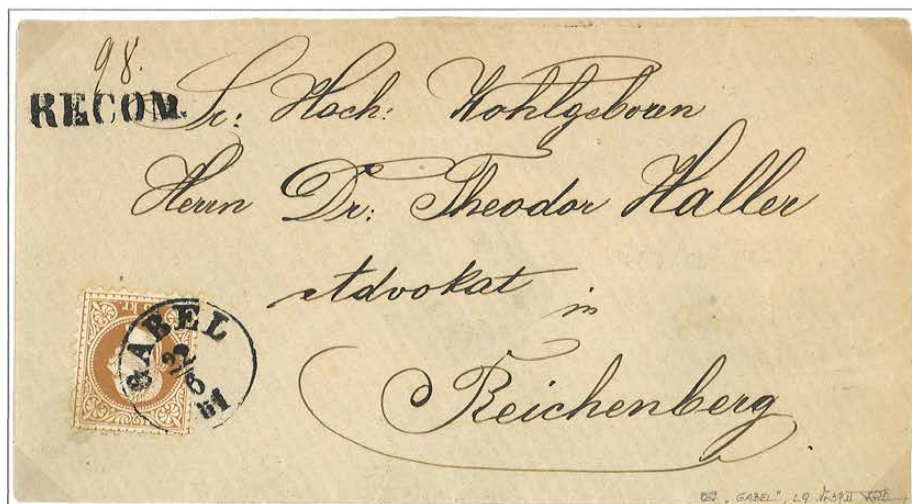 98.
RECOM.
Sr: Hoch: Wohlgeborn
Herrn Dr: Theodor Haller
Advokat
in
Reichenberg
GABEL
22
6
"GABEL",